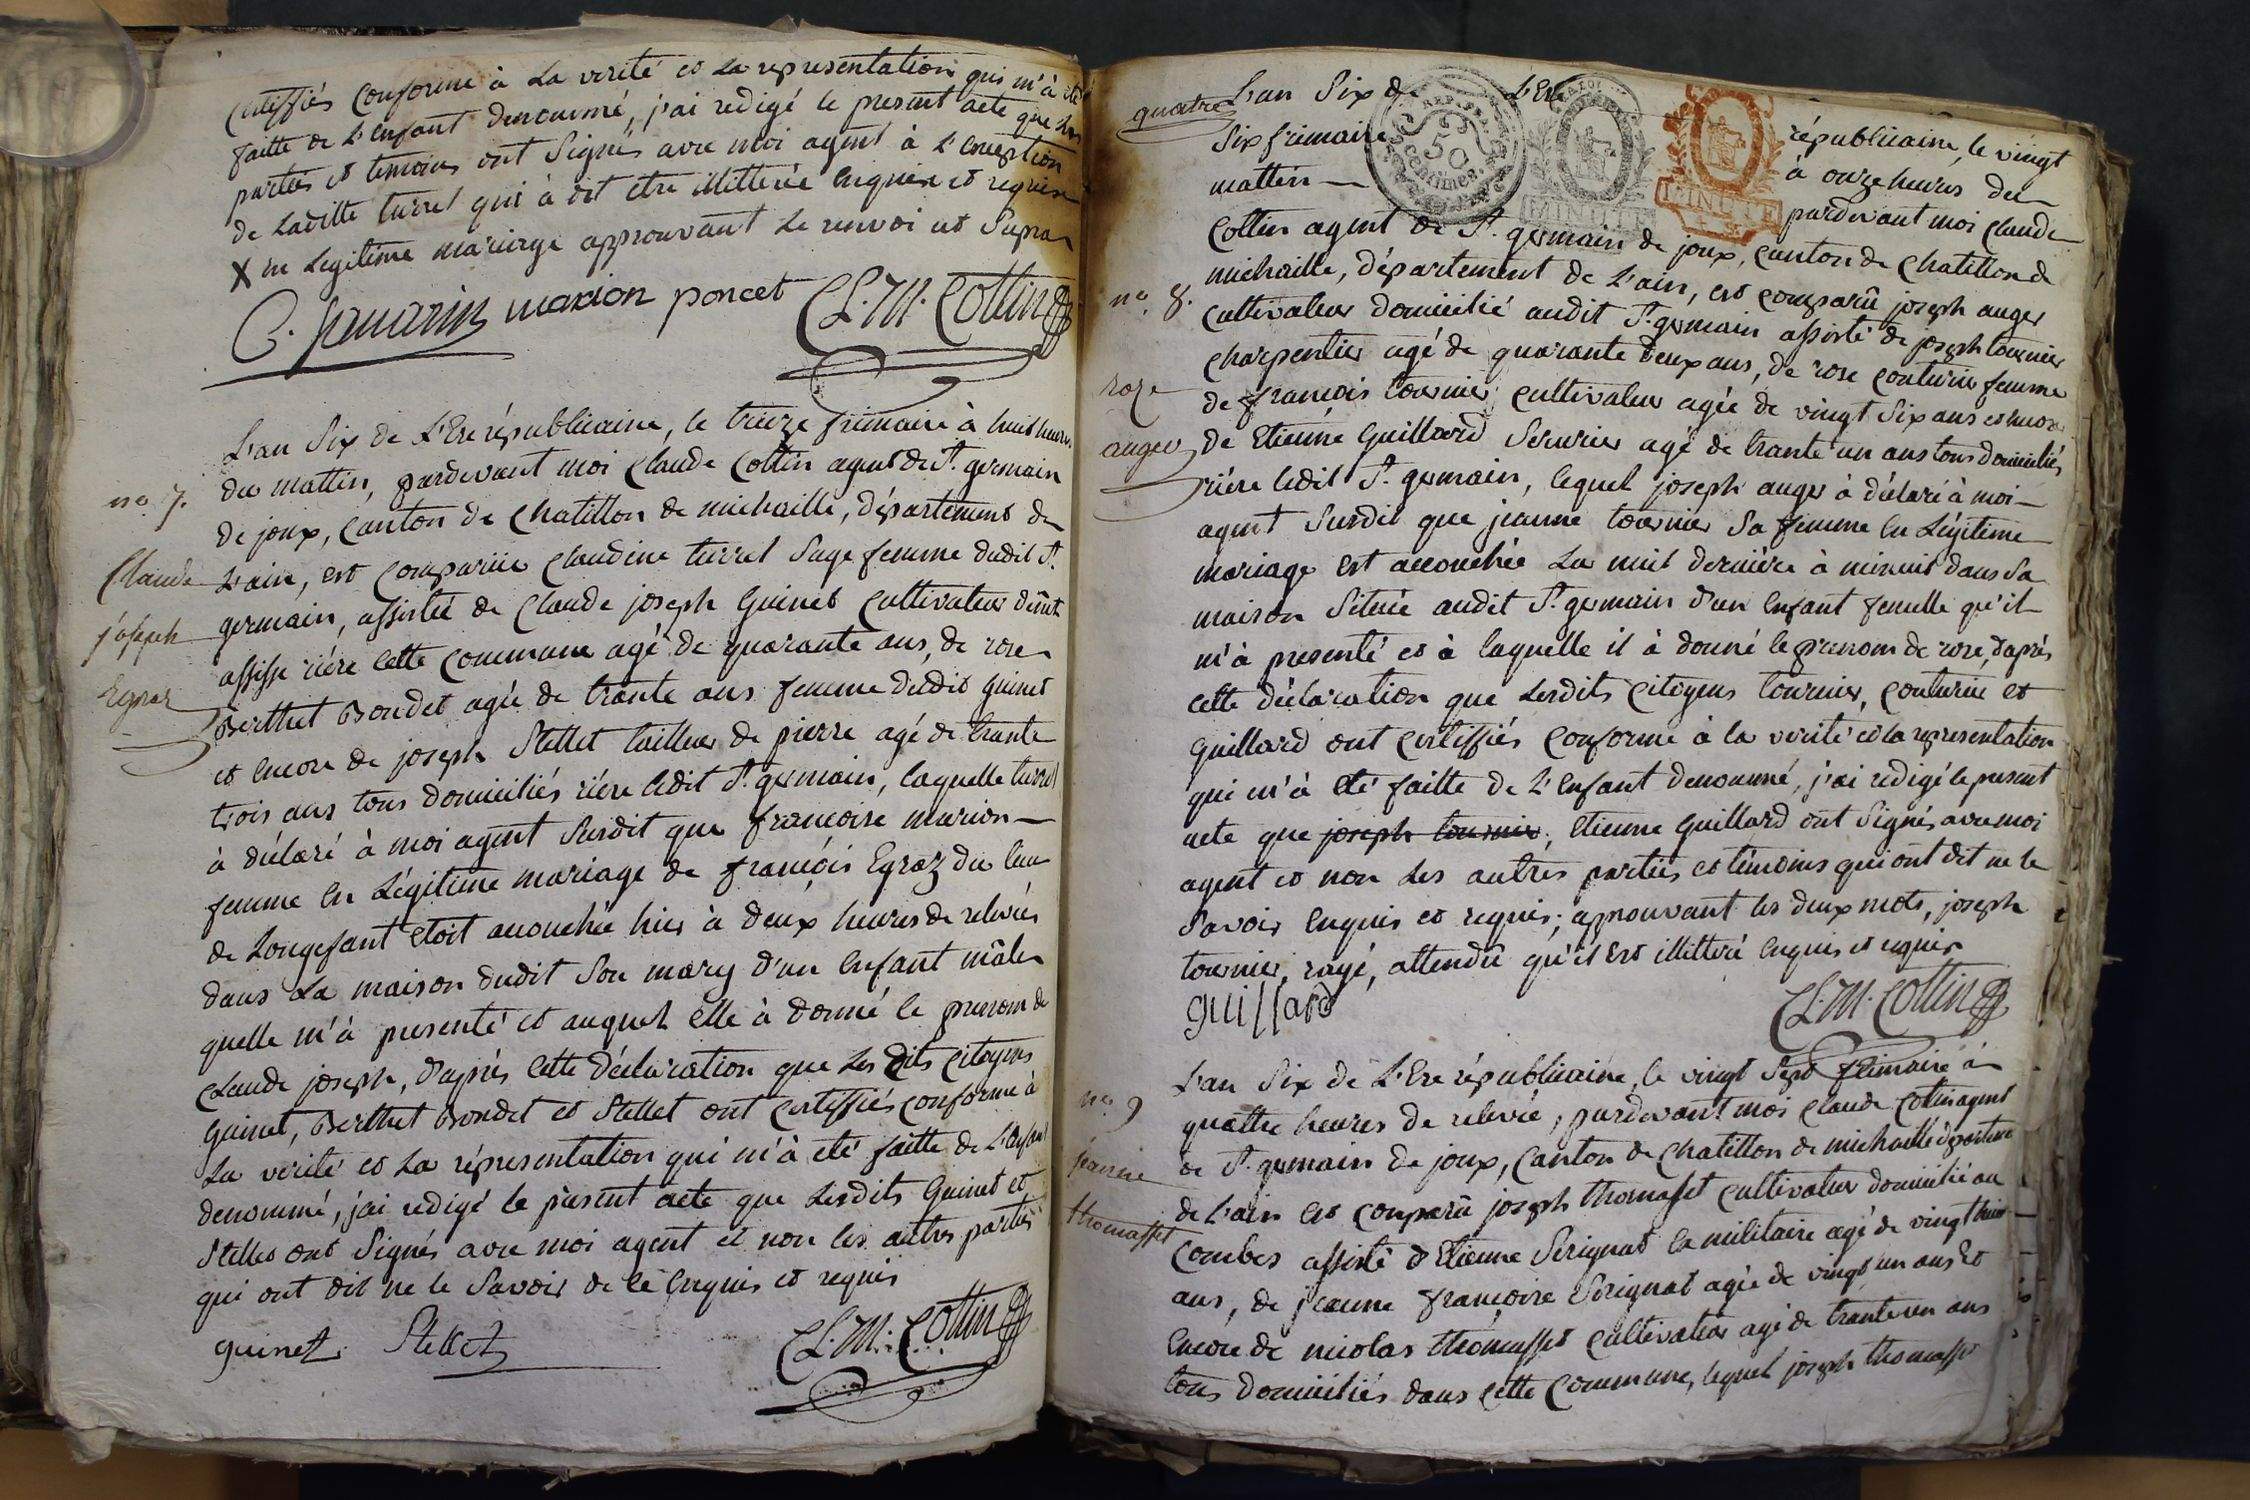 certiffiés conforme à la verité et la representation qui m'à été
faitte de L'enfant denommé, j'ai redigé le present acte que les
parties et temoins ont Signés avec moi agent à L'exception
de Laditte turrel qui à dit etre illitterée enquise et requise
X en Legitime mariage approuvant le renvoi ut Supra
marion poncet CL.M. Cottin
L'an Six de L'Ere républicaine, le treize frimaire à huit heures
du mattin, pardevant moi Claude Cottin agent de St. germain
no. 7. de joux, Canton de Chatillon de michaille, département de
Claude L'ain, est comparue Claudine turrel Sage femme dudit St.
joseph germain, assistée de Claude joseph Guinet Cultivateur
Egraz assisse riére cette Commune agé de quarante ans, de rose
Berthet Bondet agée de trante ans femme dudit Guinet
et encore de joseph Stellet tailleur de pierre agé de trante
trois ans tous domiciliés riére ledit St. germain, laquelle turrel
à déclaré à moi agent Susdit que françoise marion
femme en Légitime mariage de françois Egraz du lieu
de Longefant etoit accouchée hier à deux heures de relevée
dans La maison dudit Son mary d'un enfant mâle
quelle m'à presenté et auquel elle à donné le prenom de
Claude joseph, d'après cette déclaration que Les dits Citoyens
Guinet, Berthet Bondet et Stellet ont certiffiés conforme à
La verité et La répresentation qui m'à eté faitte de L'enfant
denommé, j'ai redigé le present acte que Lesdits Guinet et
Stellet ont Signés avec moi agent et non les autres parties
qui ont dit ne le Savoir de ce enquis et requis
guinet. Stellet CL.M. Cottin
quatre L'an Six de L'Ere républicaine, le vingt
Six frimaire à onze heures du
mattin pardevant moi Claude
REP. FRA. 50 centimes
MINUTE
MINUTE
Cottin agent de St. germain de joux, canton de Chatillon de
no. 8. michaille, département de L'ain, est comparû joseph auger
Cultivateur domicilié audit St. germain assisté de joseph tournier
charpentier agé de quarante deux ans, de rose couturier femme
roze de françois tournier cultivateur agée de vingt Six ans et encore
auger de Etienne Guillard Serurier agé de trante un ans tous domiciliés
riére ledit St. germain, lequel joseph auger à déclaré à moi
agent Susdit que jeanne tournier Sa femme en Légitime
mariage est accouchée La nuit derniére à minuit dans Sa
maison Située audit St. germain d'un enfant femelle qu'il
m'à presenté et à laquelle il à donné le prenom de rose, d'après
cette déclaration que Lesdits citoyens tournier, couturier et
Guillard ont certiffiés conforme à la verité et la representation
qui m'à eté faitte de L'enfant denommé, j'ai redigé le present
acte que joseph tournier, etienne Guillard ont Signés avec moi
agent et non Les autres parties et témoins qui ont dit ne le
Savoir enquis et requis; approuvant les deux mots, joseph
tournier, rayé, attendû qu'il est illitteré enquis et requis
guillard CL.M. Cottin
L'an Six de L'Ere républicaine, le vingt Sept frimaire à
no. 9 quattre heures de relevée, pardevant moi Claude Cottin agent
de St. germain de joux, Canton de Chatillon de michaille département
jeanne de L'ain est comparû joseph thomasset cultivateur domicilié au
thomasset Combes assisté d'Etienne Serignat militaire agé de vingt huit
ans, de jeanne françoise Serignat agée de vingt un ans et
encore de nicolas thomasset cultivateur agé de trante un ans
tous domiciliés dans cette commune, lequel joseph thomasset